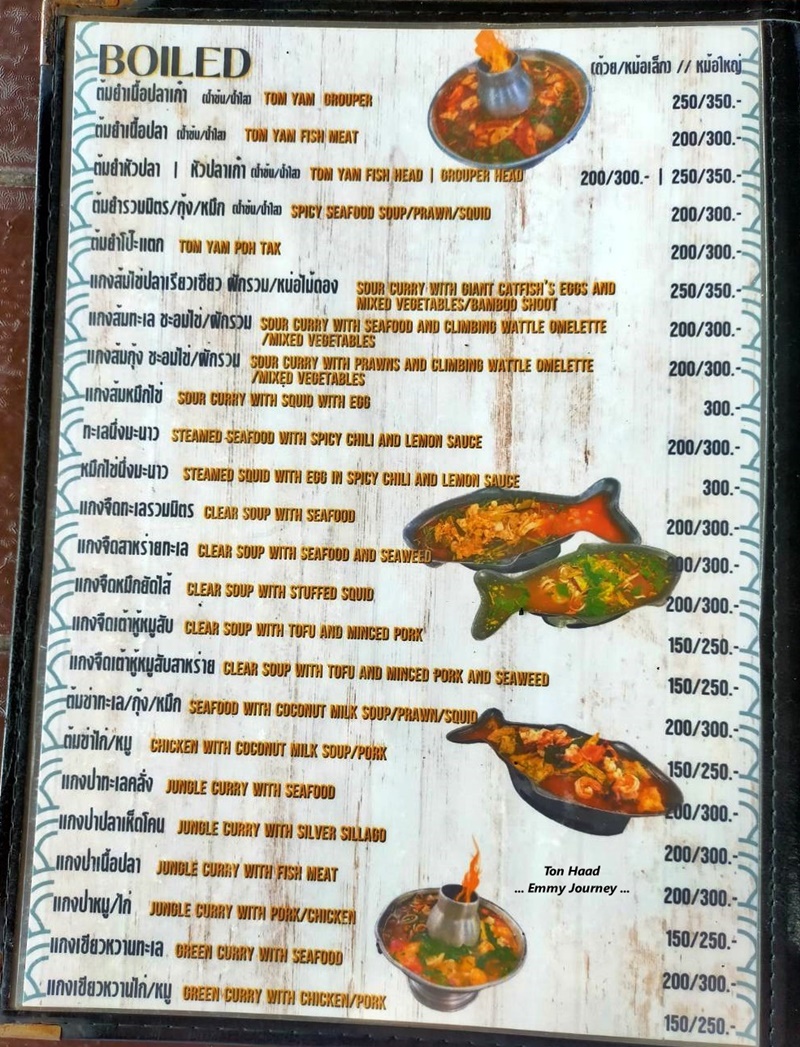 BOILED
(ถ้วย/หม้อเล็ก) // หม้อใหญ่
ต้มยำเนื้อปลาเก๋า (น้ำข้น/น้ำใส) TOM YAM GROUPER 250/350.-
ต้มยำเนื้อปลา (น้ำข้น/น้ำใส) TOM YAM FISH MEAT 200/300.-
ต้มยำหัวปลา | หัวปลาเก๋า (น้ำข้น/น้ำใส) TOM YAM FISH HEAD | GROUPER HEAD 200/300.- | 250/350.-
ต้มยำรวมมิตร/กุ้ง/หมึก (น้ำข้น/น้ำใส) SPICY SEAFOOD SOUP/PRAWN/SQUID 200/300.-
ต้มยำโป๊ะแตก TOM YAM POH TAK 200/300.-
แกงส้มไข่ปลาเรียวเซียว ผักรวม/หน่อไม้ดอง SOUR CURRY WITH GIANT CATFISH'S EGGS AND 250/350.-
MIXED VEGETABLES/BAMBOO SHOOT
แกงส้มทะเล ชะอมไข่/ผักรวม SOUR CURRY WITH SEAFOOD AND CLIMBING WATTLE OMELETTE 200/300.-
/MIXED VEGETABLES
แกงส้มกุ้ง ชะอมไข่/ผักรวม SOUR CURRY WITH PRAWNS AND CLIMBING WATTLE OMELETTE 200/300.-
/MIXED VEGETABLES
แกงส้มหมึกไข่ SOUR CURRY WITH SQUID WITH EGG 300.-
ทะเลนึ่งมะนาว STEAMED SEAFOOD WITH SPICY CHILI AND LEMON SAUCE 200/300.-
หมึกไข่นึ่งมะนาว STEAMED SQUID WITH EGG IN SPICY CHILI AND LEMON SAUCE 300.-
แกงจืดทะเลรวมมิตร CLEAR SOUP WITH SEAFOOD 200/300.-
แกงจืดสาหร่ายทะเล CLEAR SOUP WITH SEAFOOD AND SEAWEED 200/300.-
แกงจืดหมึกยัดไส้ CLEAR SOUP WITH STUFFED SQUID 200/300.-
แกงจืดเต้าหู้หมูสับ CLEAR SOUP WITH TOFU AND MINCED PORK 150/250.-
แกงจืดเต้าหู้หมูสับสาหร่าย CLEAR SOUP WITH TOFU AND MINCED PORK AND SEAWEED 150/250.-
ต้มข่าทะเล/กุ้ง/หมึก SEAFOOD WITH COCONUT MILK SOUP/PRAWN/SQUID 200/300.-
ต้มข่าไก่/หมู CHICKEN WITH COCONUT MILK SOUP/PORK 150/250.-
แกงป่าทะเลคลั่ง JUNGLE CURRY WITH SEAFOOD 200/300.-
แกงป่าปลาเห็ดโคน JUNGLE CURRY WITH SILVER SILLAGO 200/300.-
แกงป่าเนื้อปลา JUNGLE CURRY WITH FISH MEAT 200/300.-
แกงป่าหมู/ไก่ JUNGLE CURRY WITH PORK/CHICKEN 150/250.-
แกงเขียวหวานทะเล GREEN CURRY WITH SEAFOOD 200/300.-
แกงเขียวหวานไก่/หมู GREEN CURRY WITH CHICKEN/PORK 150/250.-
Ton Haad
... Emmy Journey ...